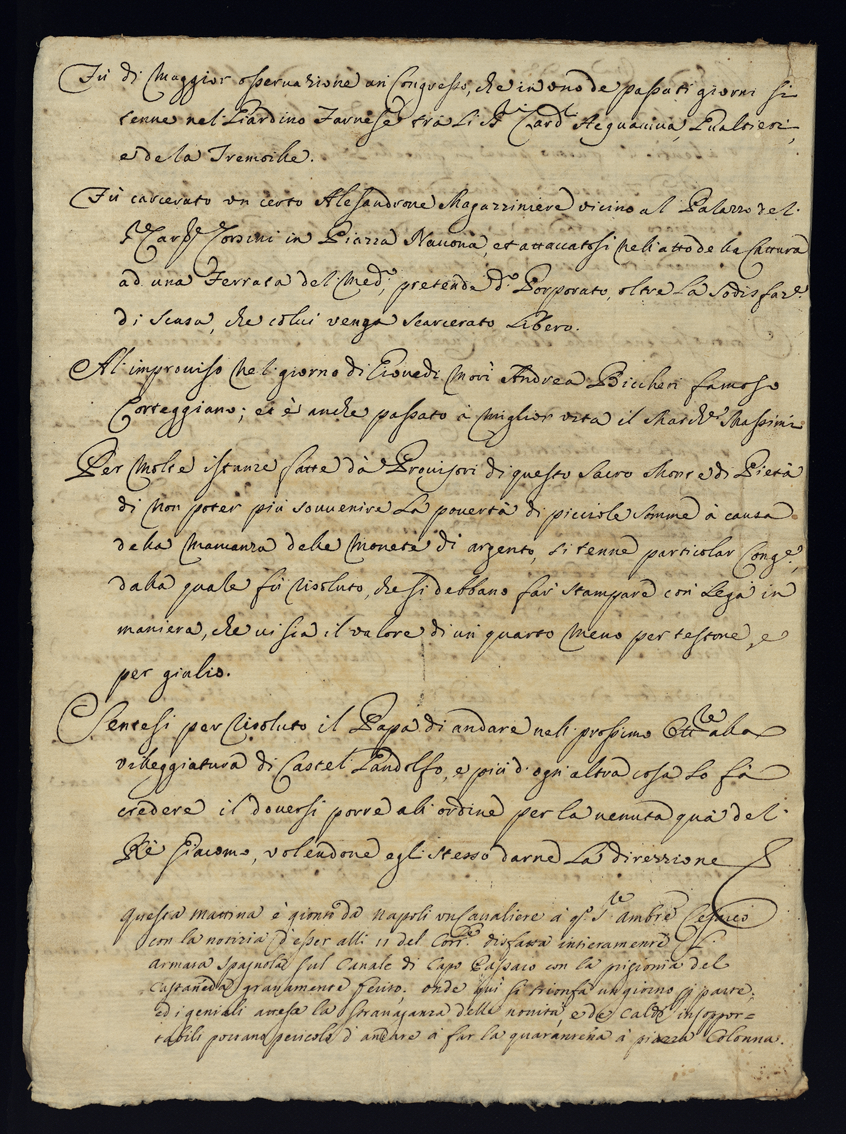 Fù di maggior osseruazione un Congresso, che in uno de passati giorni si
tenne nel Giardino Farnese trà li SS.ri Card.li Acquauiua, Gualtieri,
e de la Tremoille.
Fù carcerato un certo Alesandrone Magazziniere vicino al Palazzo del
S.re Card.le Corsini in Piazza Nauona, et attaccatosi nell'atto della Cattura
ad una Ferrata del Med.o, pretende d.o Porporato, oltre la sodisfaz.e
di scusa, che colui venga scarcerato libero.
All'improuiso nel giorno di Giouedì morì Andrea Biccheri famoso
Corteggiano; et è anche passato à miglior vita il March.e Massimi
Per molte istanze fatte dà Prouisori di questo Sacro Monte di Pietà
di non poter più souuenire la pouertà di picciole somme à causa
della mancanza delle monete di argento, si tenne particolar Cong.e,
dalla quale fù risoluto, che si debbano far stampare con lega in
maniera, che ui sia il valore di un quarto meno per testone, e
per giulio.
Sentesi per risoluto il Papa di andare nell' prossimo Ott.re alla
villeggiatura di Castel Gandolfo, e più d'ogni altra cosa lo fà
credere il douersi porre all'ordine per la uenuta quà del
Rè Giacomo, volendone egli stesso darne la direzzione
Questa mattina è gionto da Napoli un Caualiere à q.o S.re Ambre Cesareo
con la notizia d'esser alli 11 del Corr.e disfatta intieramente l'
armata spagnola sul Canale di Capo Passaro con la pigionia del
Castaneda grauamente ferito. onde qui si trionfa un giorno p parte,
ed i geniali attesa la strauaganza delle nouità, e de Caldi insoppor=
tabili portano pericolo d'andare à far la quarantena à piazza Colonna.